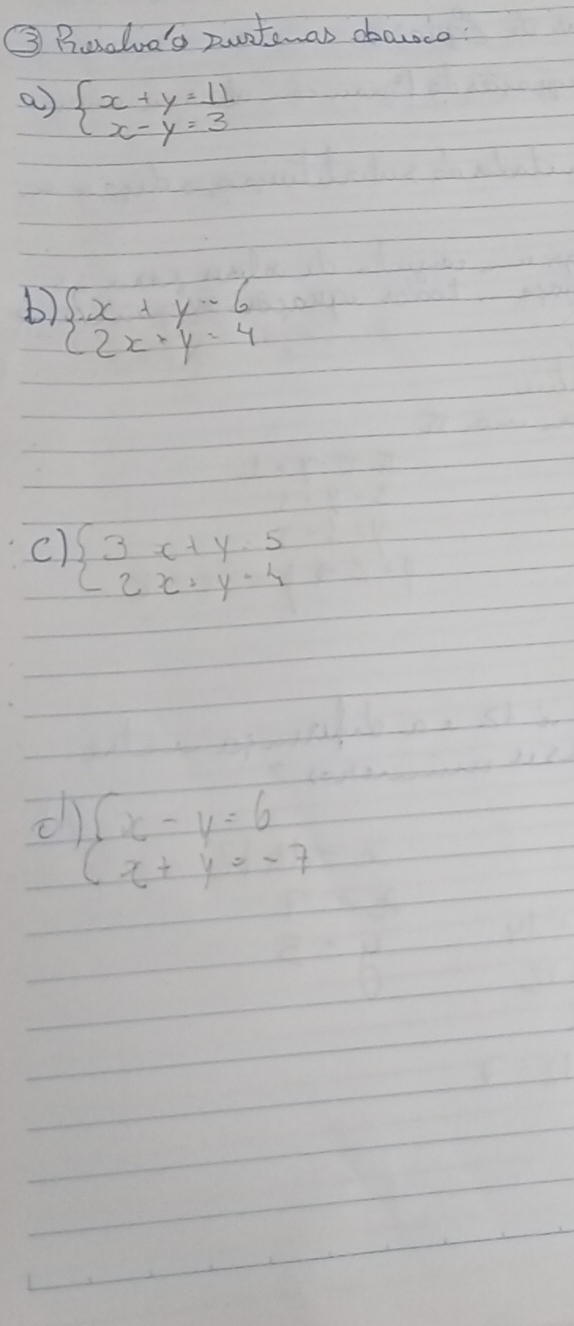 ③ Resolva os sistemas abaixo:
a) { x + y = 11
x - y = 3
b) { x + y = 6
2x + y = 4
c) { 3x + y = 5
2x + y = 4
d) { x - y = 6
x + y = -7